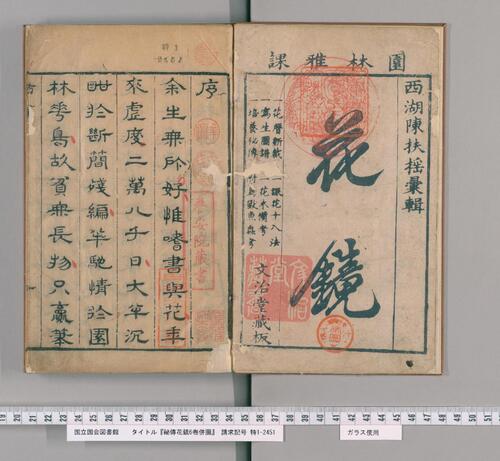 園林雅課
西湖陳扶搖彙輯
花鏡
花曆新栽 一 課花十八法
寫生圖譜 一 花木備考
培養秘傳
文治堂藏板
序
余生無所好惟嗜書與花年
來虛度二萬八千日大半沉
酣於斷簡殘編半馳情於園
林花鳥故貧無長物只贏筆
国立国会図書館 タイトル『秘傳花鏡6巻併圖』 請求記号 特1-2451
ガラス使用